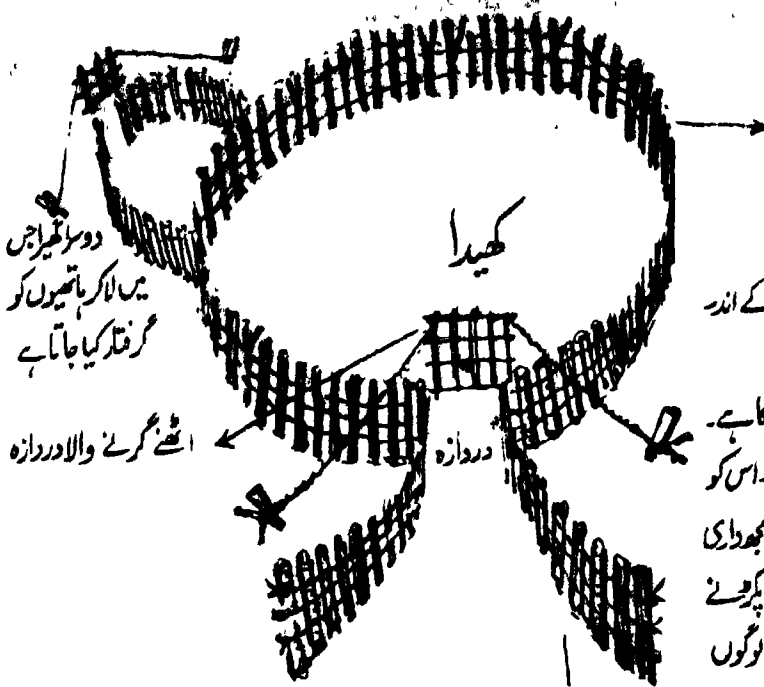 کھیدا
دوسرا گھیرا جس
میں لاکر ہاتھیوں کو
گرفتار کیا جاتا ہے
اٹھنے گرنے والا دروازہ
دروازہ
کے اندر
کا ہے۔
اس کو
پکڑنے
لوگوں